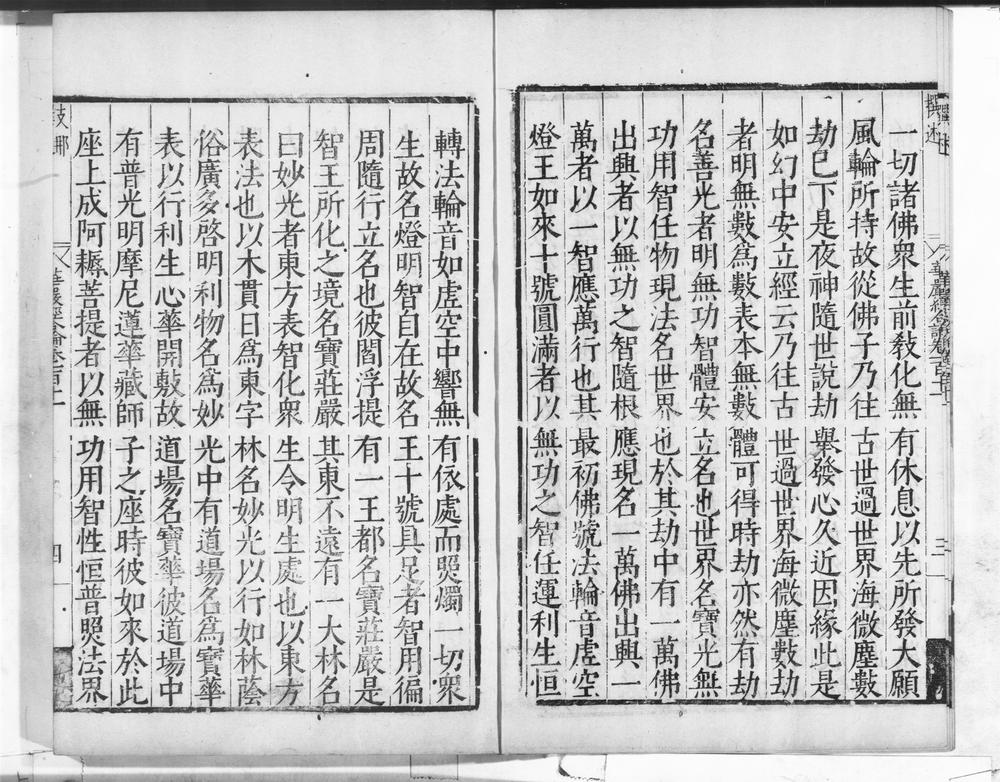 一切諸佛衆生前敎化無有休息以先所發大願
風輪所持故從佛子乃往古世過世界海微塵數
劫巳下是夜神隨世說劫舉發心久近因緣此是
如幻中安立經云乃往古世過世界海微塵數劫
者明無數爲數表本無數體可得時劫亦然有劫
名善光者明無功智體安立名也世界名寶光無
功用智任物現法名世界也於其劫中有一萬佛
出興者以無功之智隨根應現名一萬佛出興一
萬者以一智應萬行也其最初佛號法輪音虛空
燈王如來十號圓滿者以無功之智任運利生恒
轉法輪音如虛空中響無有依處而照燭一切衆
生故名燈明智自在故名王十號具足者智用徧
周隨行立名也彼閻浮提有一王都名寶莊嚴是
智王所化之境名寶莊嚴其東不遠有一大林名
曰妙光者東方表智化衆生令明生處也以東方
表法也以木貫日爲東字林名妙光以行如林蔭
俗廣多啓明利物名爲妙光中有道場名爲寶華
表以行利生心華開敷故道場名寶華彼道場中
有普光明摩尼蓮華藏師子之座時彼如來於此
座上成阿耨菩提者以無功用智性恒普照法界
撰述
三
支那
華嚴經合論卷一百十一
四